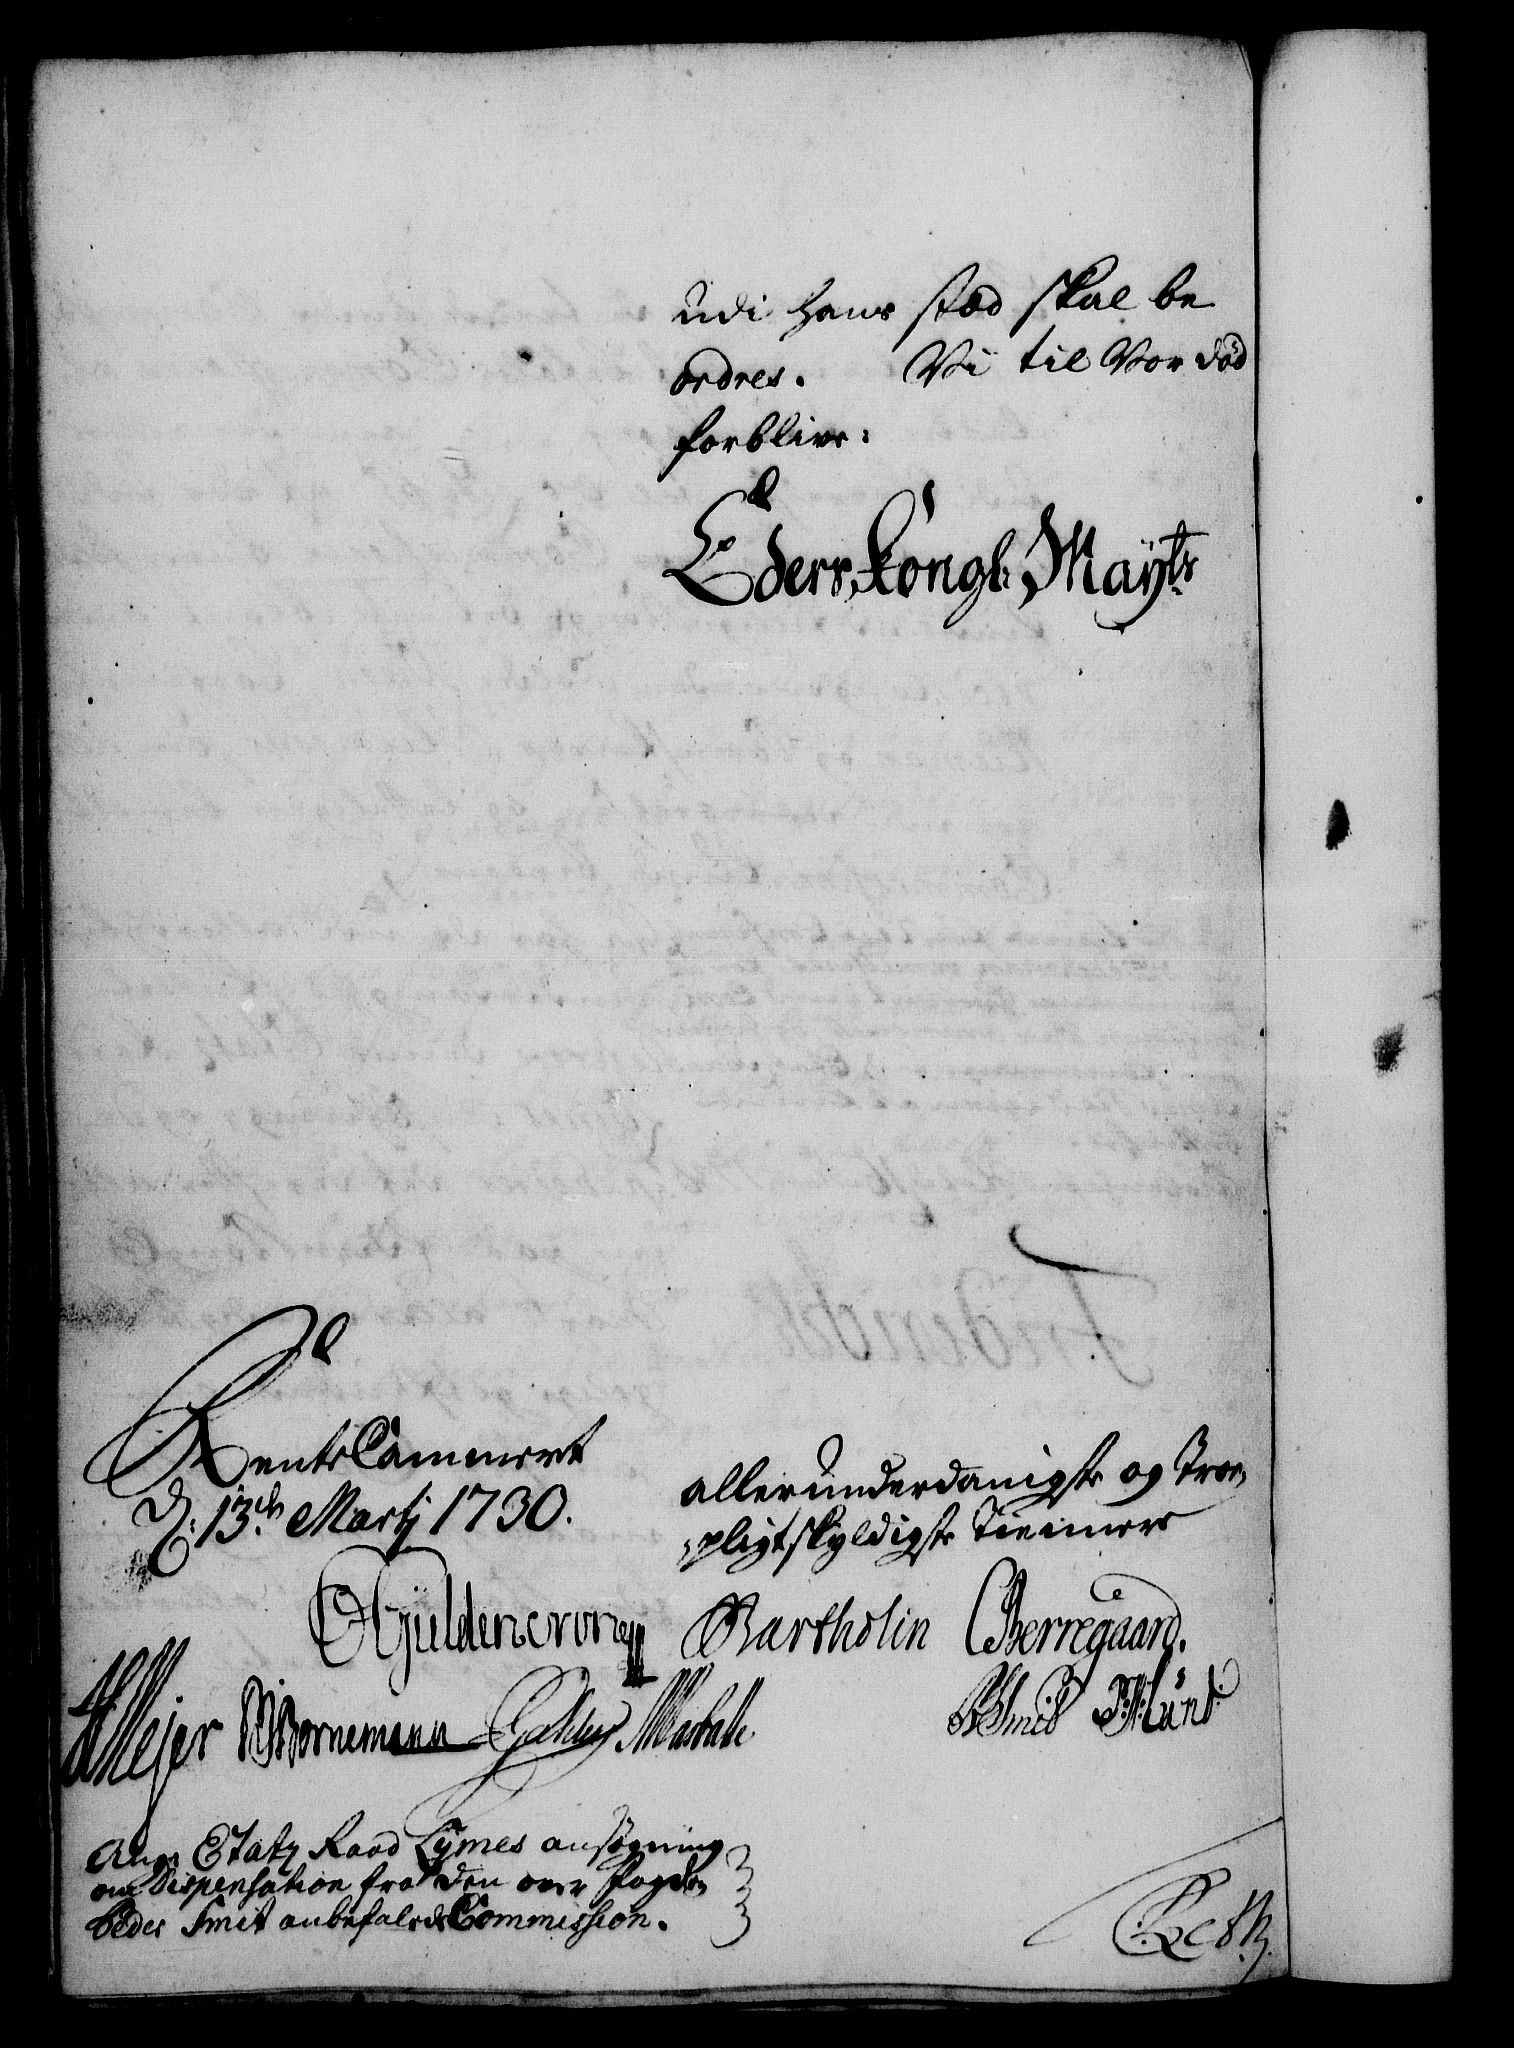 udi hans stæd skal be
ordres. Vi til Vor död
forblive:
Eders Köngl: Mayts
RenteCammeret
d: 13de Martj 1730.
allerunderdanigste og Troe
pligtskyldigste Tiennere
Güldencrone
Bartholin CBerregaard.
HMejer Bornemann
Ang: Etatz Raad Lymes ansögning
om Dispensation fra den over fogden
Peder Smit anbefalede Commission.